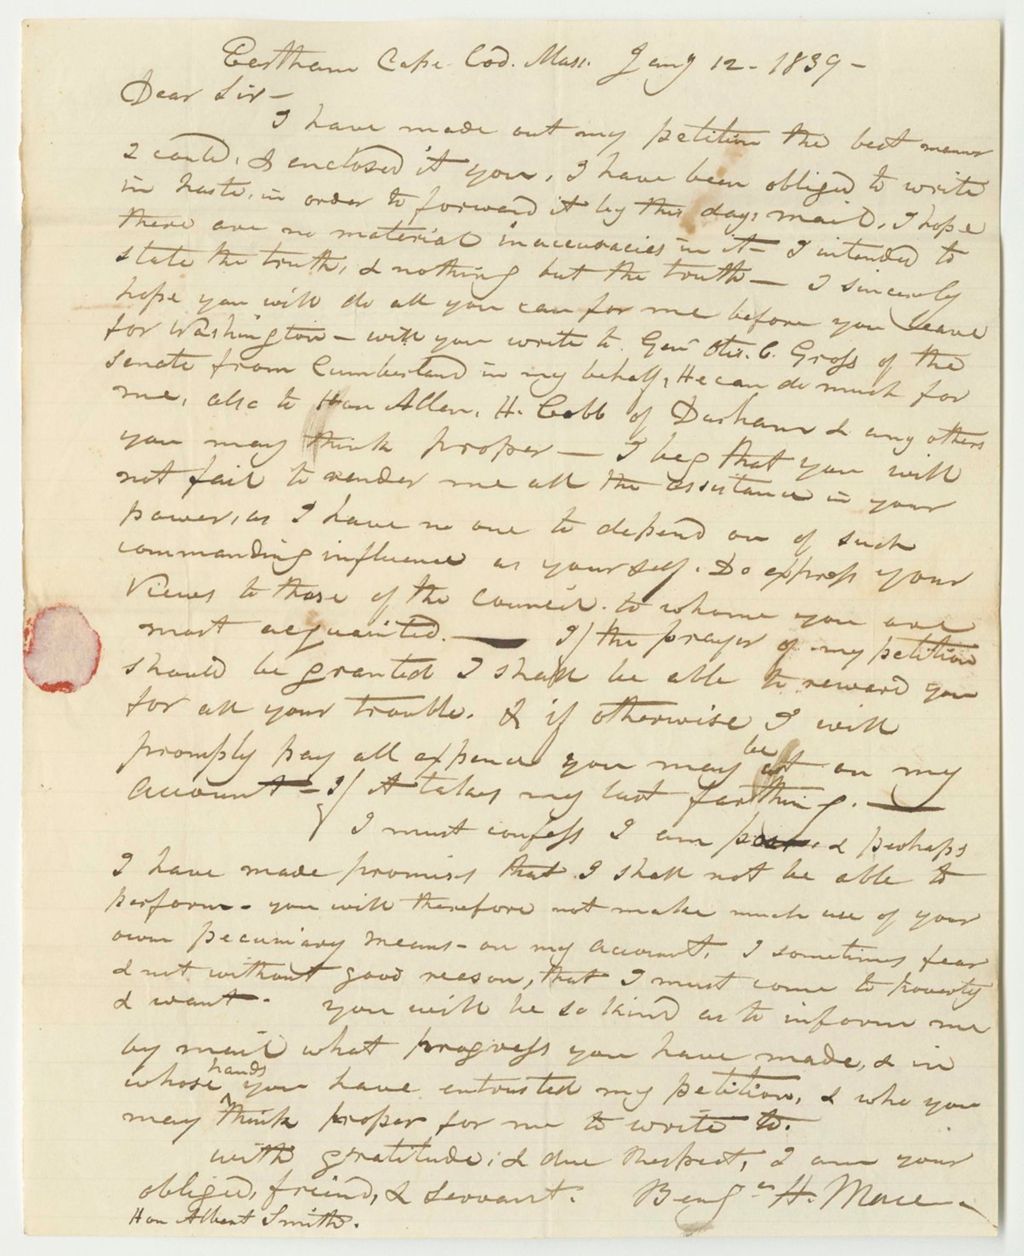 Eastham Cape Cod. Mass. Jany 12 - 1839 -
Dear Sir -
I have made out my petition the best manner
I could, & enclosed it you. I have been obliged to write
in haste, in order to forward it by this days mail, I hope
there are no material inaccuracies in it - I intended to
state the truth, & nothing but the truth — I sincerely
hope you will do all you can for me before you leave
for Washington - will you write to Genl Otis. C. Gross of the
Senate from Cumberland in my behalf, He can do much for
me, also to Hon Allen, H. Cobb of Durham & any others
you may think proper — I beg that you will
not fail to render me all the assistance in your
power, as I have no one to depend on of such
commanding influence as yourself. Do express your
Views to those of the Council. to whome you are
most acquainted. — If the prayer of my petition
should be granted I shall be able to reward you
for all your trouble. & if otherwise I will
promply pay all expence you may be at on my
account - If it takes my last farthing. —
I must confess I am & perhaps
I have made promises that I shall not be able to
perform - you will therefore not make much use of your
own pecuniary means - on my account. I sometimes fear
& not without good reason, that I must come to poverty
& want - you will be so kind as to inform me
by mail what progress you have made, & in
whose hands you have entrusted my petition, & who you
may think proper for me to write to.
with gratitude, & due Respect, I am your
obliged, freind, & servant. Benjn H. Mace -
Hon Albert Smith.